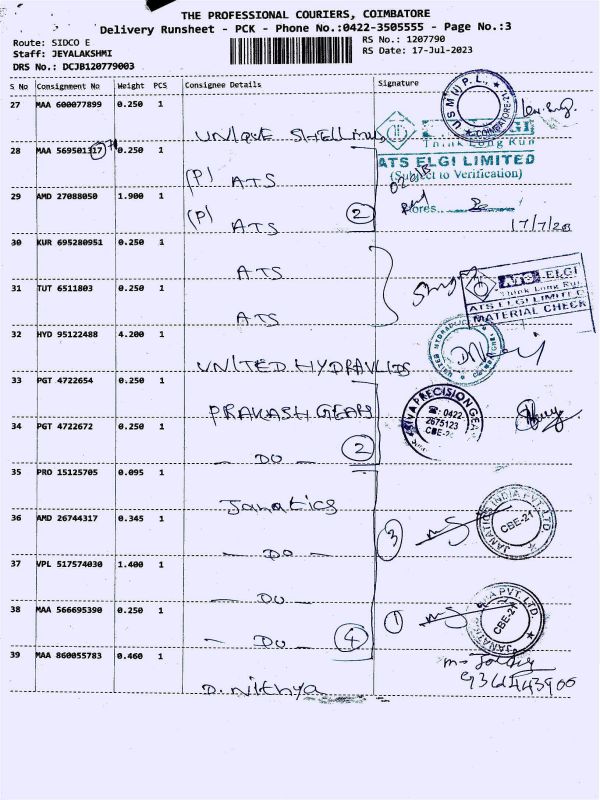 THE PROFESSIONAL COURIERS, COIMBATORE
Delivery Runsheet - PCK - Phone No.:0422-3505555 - Page No.:3
Route: SIDCO E
Staff: JEYALAKSHMI
DRS No.: DCJB120779003
RS No.: 1207790
RS Date: 17-Jul-2023
S No Consignment No Weight PCS Consignee Details Signature
27 MAA 600077899 0.250 1
UNIQUE SHELL
28 MAA 569501317 0.250 1
(P) ATS
29 AMD 27088050 1.900 1
(P) ATS 2
30 KUR 695280951 0.250 1
ATS
31 TUT 6511803 0.250 1
ATS
32 HYD 95122488 4.200 1
UNITED HYDRAULIDS
33 PGT 4722654 0.250 1
PRAKASH GEARS
34 PGT 4722672 0.250 1
— DO — 2
35 PRO 15125705 0.095 1
Janatics
36 AMD 26744317 0.345 1
— DO —
37 VPL 517574030 1.400 1
— DO —
38 MAA 566695390 0.250 1
— DO — 4
39 MAA 860055783 0.460 1
D. nithya
USM(I)P.L.,
COIMBATORE-21
ELGI
Think Long Run
ATS ELGI LIMITED
(Subject to Verification)
17/7/23
ELGI
Think Long Run
ATS ELGI LIMITED
MATERIAL CHECK
UNITED HYDRAULIC
SIVA PRECISION GEAR
☎: 0422
2675123
CBE-2
3
JANATICS INDIA PVT. LTD
CBE-21
1
JANATICS INDIA PVT. LTD
CBE-21